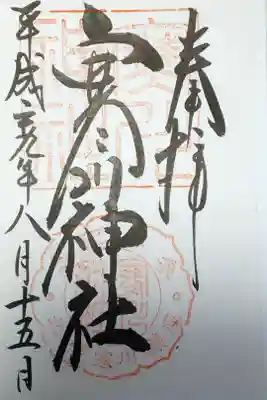 奉拝
寒川神社
平成二九年八月十五日